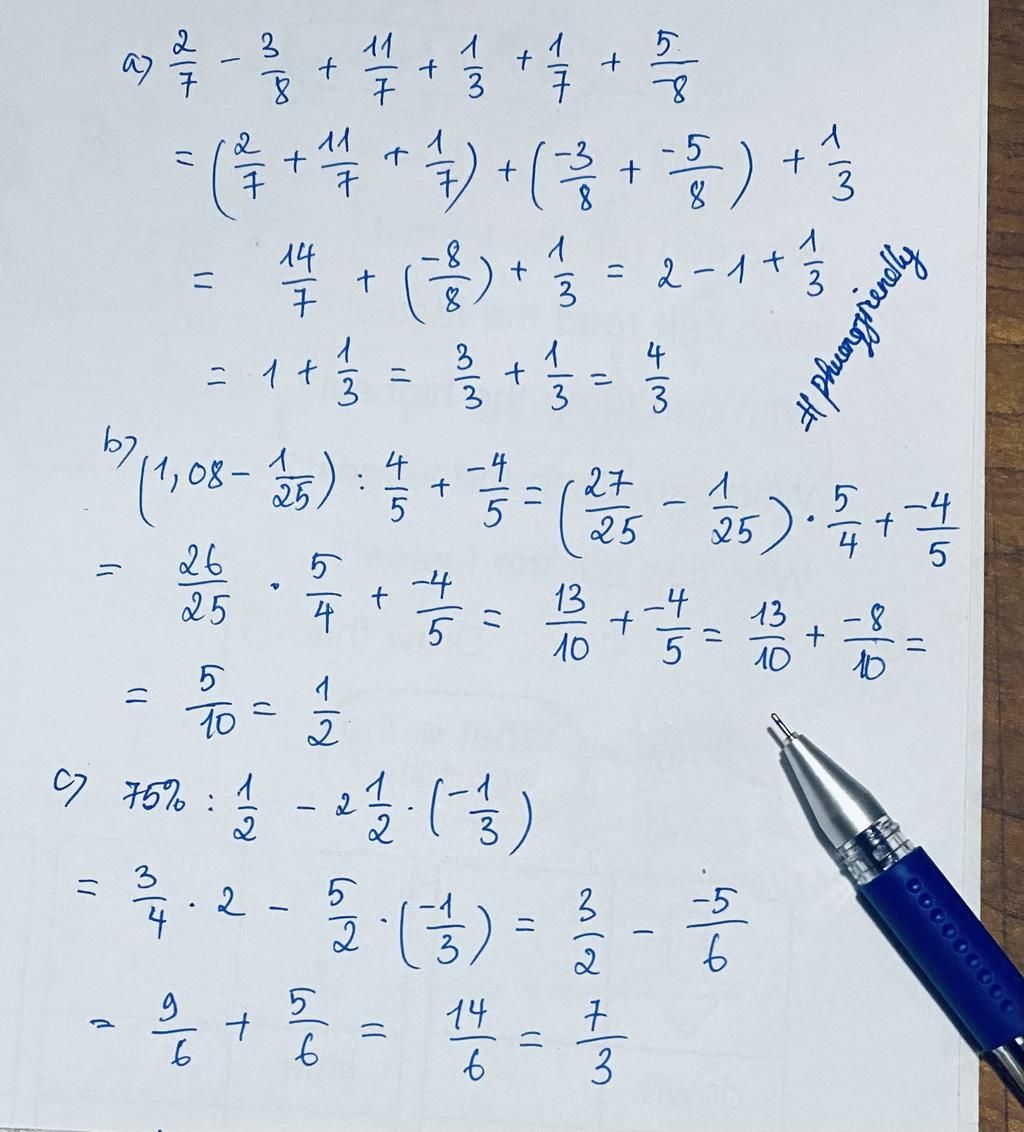 a) 2/7 - 3/8 + 11/7 + 1/3 + 1/7 + 5/-8
= (2/7 + 11/7 + 1/7) + (-3/8 + -5/8) + 1/3
= 14/7 + (-8/8) + 1/3 = 2 - 1 + 1/3
= 1 + 1/3 = 3/3 + 1/3 = 4/3
# phuongfrienelly
b) (1,08 - 1/25) : 4/5 + -4/5 = (27/25 - 1/25) . 5/4 + -4/5
= 26/25 . 5/4 + -4/5 = 13/10 + -4/5 = 13/10 + -8/10 =
= 5/10 = 1/2
c) 75% : 1/2 - 2 1/2 . (-1/3)
= 3/4 . 2 - 5/2 . (-1/3) = 3/2 - -5/6
= 9/6 + 5/6 = 14/6 = 7/3